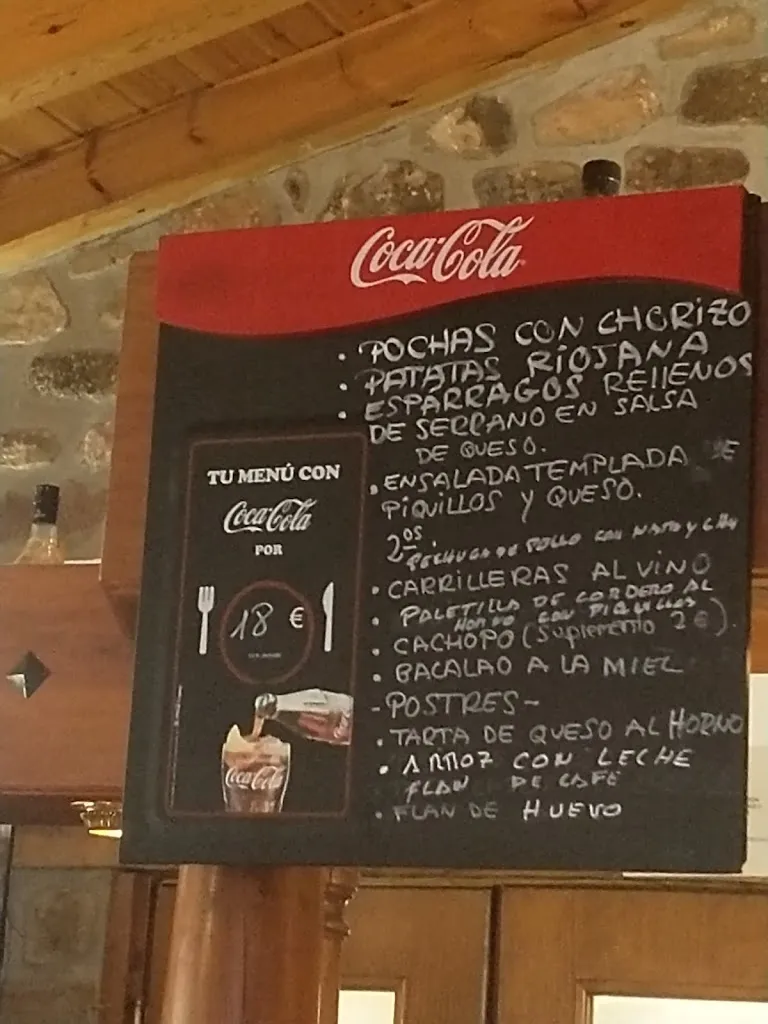 Coca-Cola
· POCHAS CON CHORIZO
· PATATAS RIOJANA
· ESPARRAGOS RELLENOS
DE SERRANO EN SALSA
DE QUESO.
· ENSALADA TEMPLADA DE
PIQUILLOS Y QUESO.
2os.
PECHUGA DE POLLO CON NATA Y
· CARRILLERAS AL VINO
· PALETILLA DE CORDERO AL
HORNO CON PIQUILLOS
· CACHOPO (Suplemento 2 €).
· BACALAO A LA MIEL
- POSTRES -
· TARTA DE QUESO AL HORNO
· ARROZ CON LECHE
FLAN DE CAFE
· FLAN DE HUEVO
TU MENÚ CON
Coca-Cola
POR
18 €
Coca-Cola